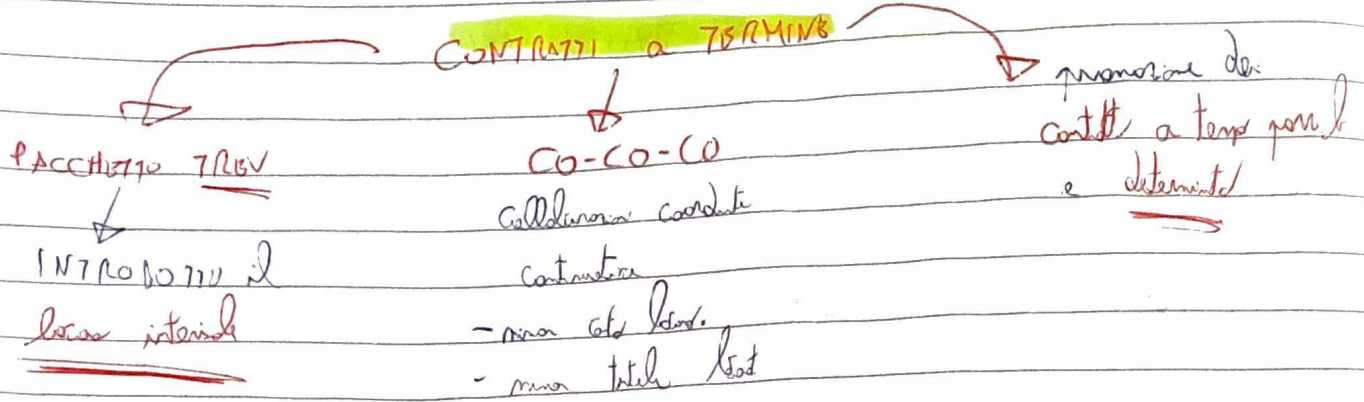 CONTRATTI a TERMINE
PACCHETTO TREU
INTRODOTTO il
lavoro interinale
CO-CO-CO
collaborazioni coordinate
continuative
- minor costo lavor.
- minor tutela
promozione dei
contratti a tempo
e determinato